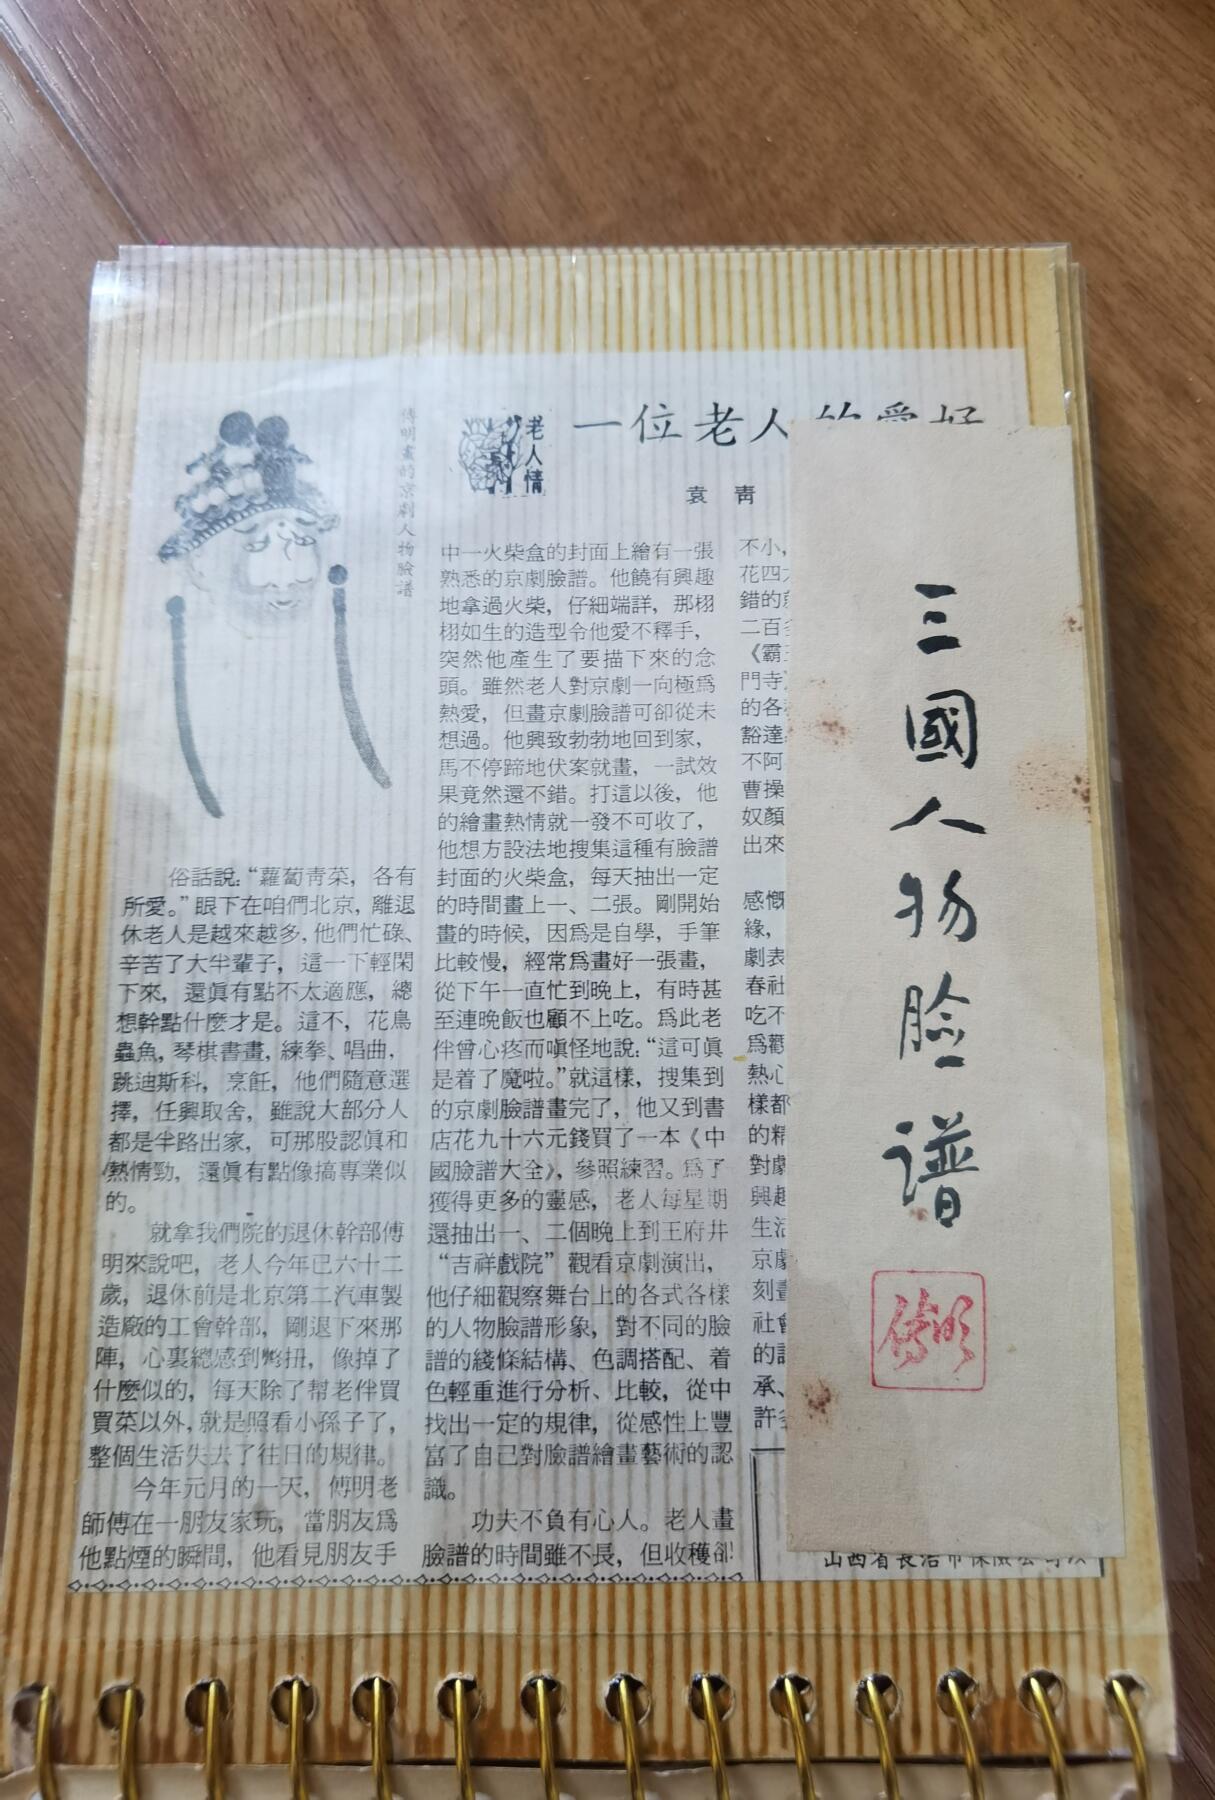 一位老人的愛好
老人情
袁青
傅明畫的京劇人物臉譜
俗話說：“蘿蔔青菜，各有
所愛。”眼下在咱們北京，離退
休老人是越來越多，他們忙碌、
辛苦了大半輩子，這一下輕閑
下來，還眞有點不太適應，總
想幹點什麼才是。這不，花鳥
蟲魚，琴棋書畫，練拳、唱曲，
跳迪斯科，烹飪，他們隨意選
擇，任興取舍，雖說大部分人
都是半路出家，可那股認眞和
熱情勁，還眞有點像搞專業似
的。
就拿我們院的退休幹部傅
明來說吧，老人今年已六十二
歲，退休前是北京第二汽車製
造廠的工會幹部，剛退下來那
陣，心裏總感到彆扭，像掉了
什麼似的，每天除了幫老伴買
買菜以外，就是照看小孫子了，
整個生活失去了往日的規律。
今年元月的一天，傅明老
師傅在一朋友家玩，當朋友爲
他點煙的瞬間，他看見朋友手
中一火柴盒的封面上繪有一張
熟悉的京劇臉譜。他饒有興趣
地拿過火柴，仔細端詳，那栩
栩如生的造型令他愛不釋手，
突然他產生了要描下來的念
頭。雖然老人對京劇一向極爲
熱愛，但畫京劇臉譜可卻從未
想過。他興致勃勃地回到家，
馬不停蹄地伏案就畫，一試效
果竟然還不錯。打這以後，他
的繪畫熱情就一發不可收了，
他想方設法地搜集這種有臉譜
封面的火柴盒，每天抽出一定
的時間畫上一、二張。剛開始
畫的時候，因爲是自學，手筆
比較慢，經常爲畫好一張畫，
從下午一直忙到晚上，有時甚
至連晚飯也顧不上吃。爲此老
伴曾心疼而嗔怪地說：“這可眞
是着了魔啦。”就這樣，搜集到
的京劇臉譜畫完了，他又到書
店花九十六元錢買了一本《中
國臉譜大全》，參照練習。爲了
獲得更多的靈感，老人每星期
還抽出一、二個晚上到王府井
“吉祥戲院”觀看京劇演出，
他仔細觀察舞台上的各式各樣
的人物臉譜形象，對不同的臉
譜的綫條結構、色調搭配、着
色輕重進行分析、比較，從中
找出一定的規律，從感性上豐
富了自己對臉譜繪畫藝術的認
識。
功夫不負有心人。老人畫
臉譜的時間雖不長，但收穫卻
不小，
花四
錯的
二百
《霸
門寺
的各
豁達
不阿
曹操
奴顏
出來
感慨
緣，
劇表
春社
吃不
爲觀
熱心
樣都
的精
對劇
興趣
生活
京劇
刻畫
社會
的
承、
許
山西省長治市保險公司
三國人物臉譜
傅明